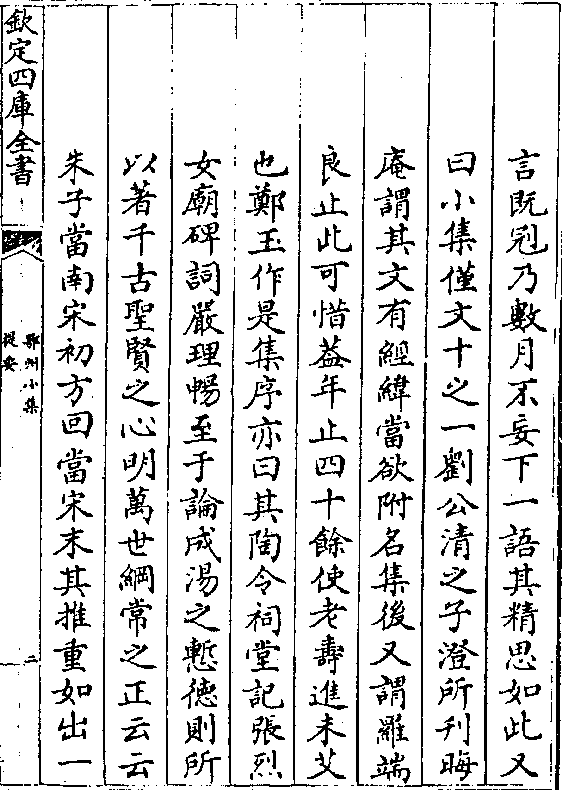 言既冠乃數月不妄下一語其精思如此又
曰小集僅文十之一劉公清之子澄所刋晦
庵謂其文有經緯嘗欲附名集後又謂羅端
良止此可惜葢年止四十餘使老壽進未艾
也鄭玉作是集序亦曰其陶令祠堂記張烈
女廟碑詞嚴理暢至于論成湯之慙德則所
以著千古聖賢之心明萬世綱常之正云云
朱子當南宋初方回當宋末其推重如出一
欽定四庫全書
鄂州小集
提要
二